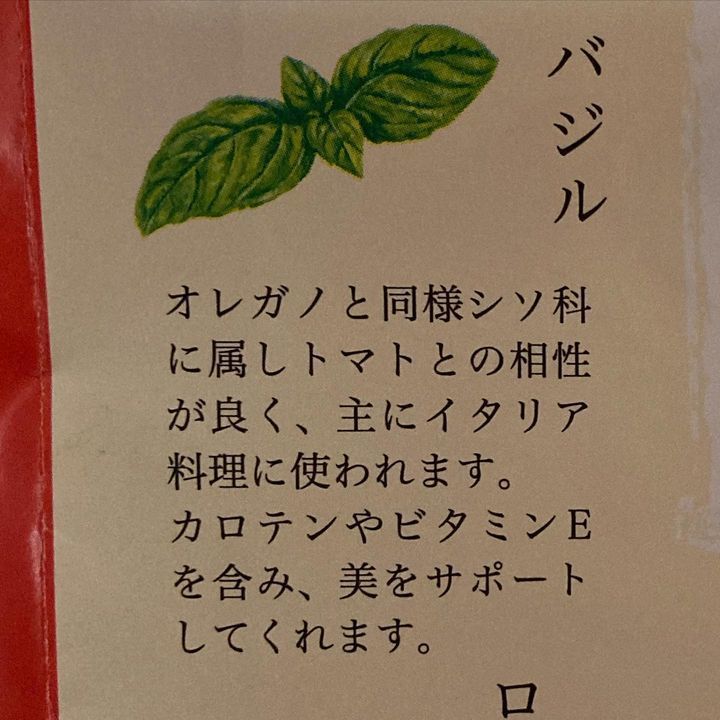 バジル
オレガノと同様シソ科
に属しトマトとの相性
が良く、主にイタリア
料理に使われます。
カロテンやビタミンE
を含み、美をサポート
してくれます。
ロ